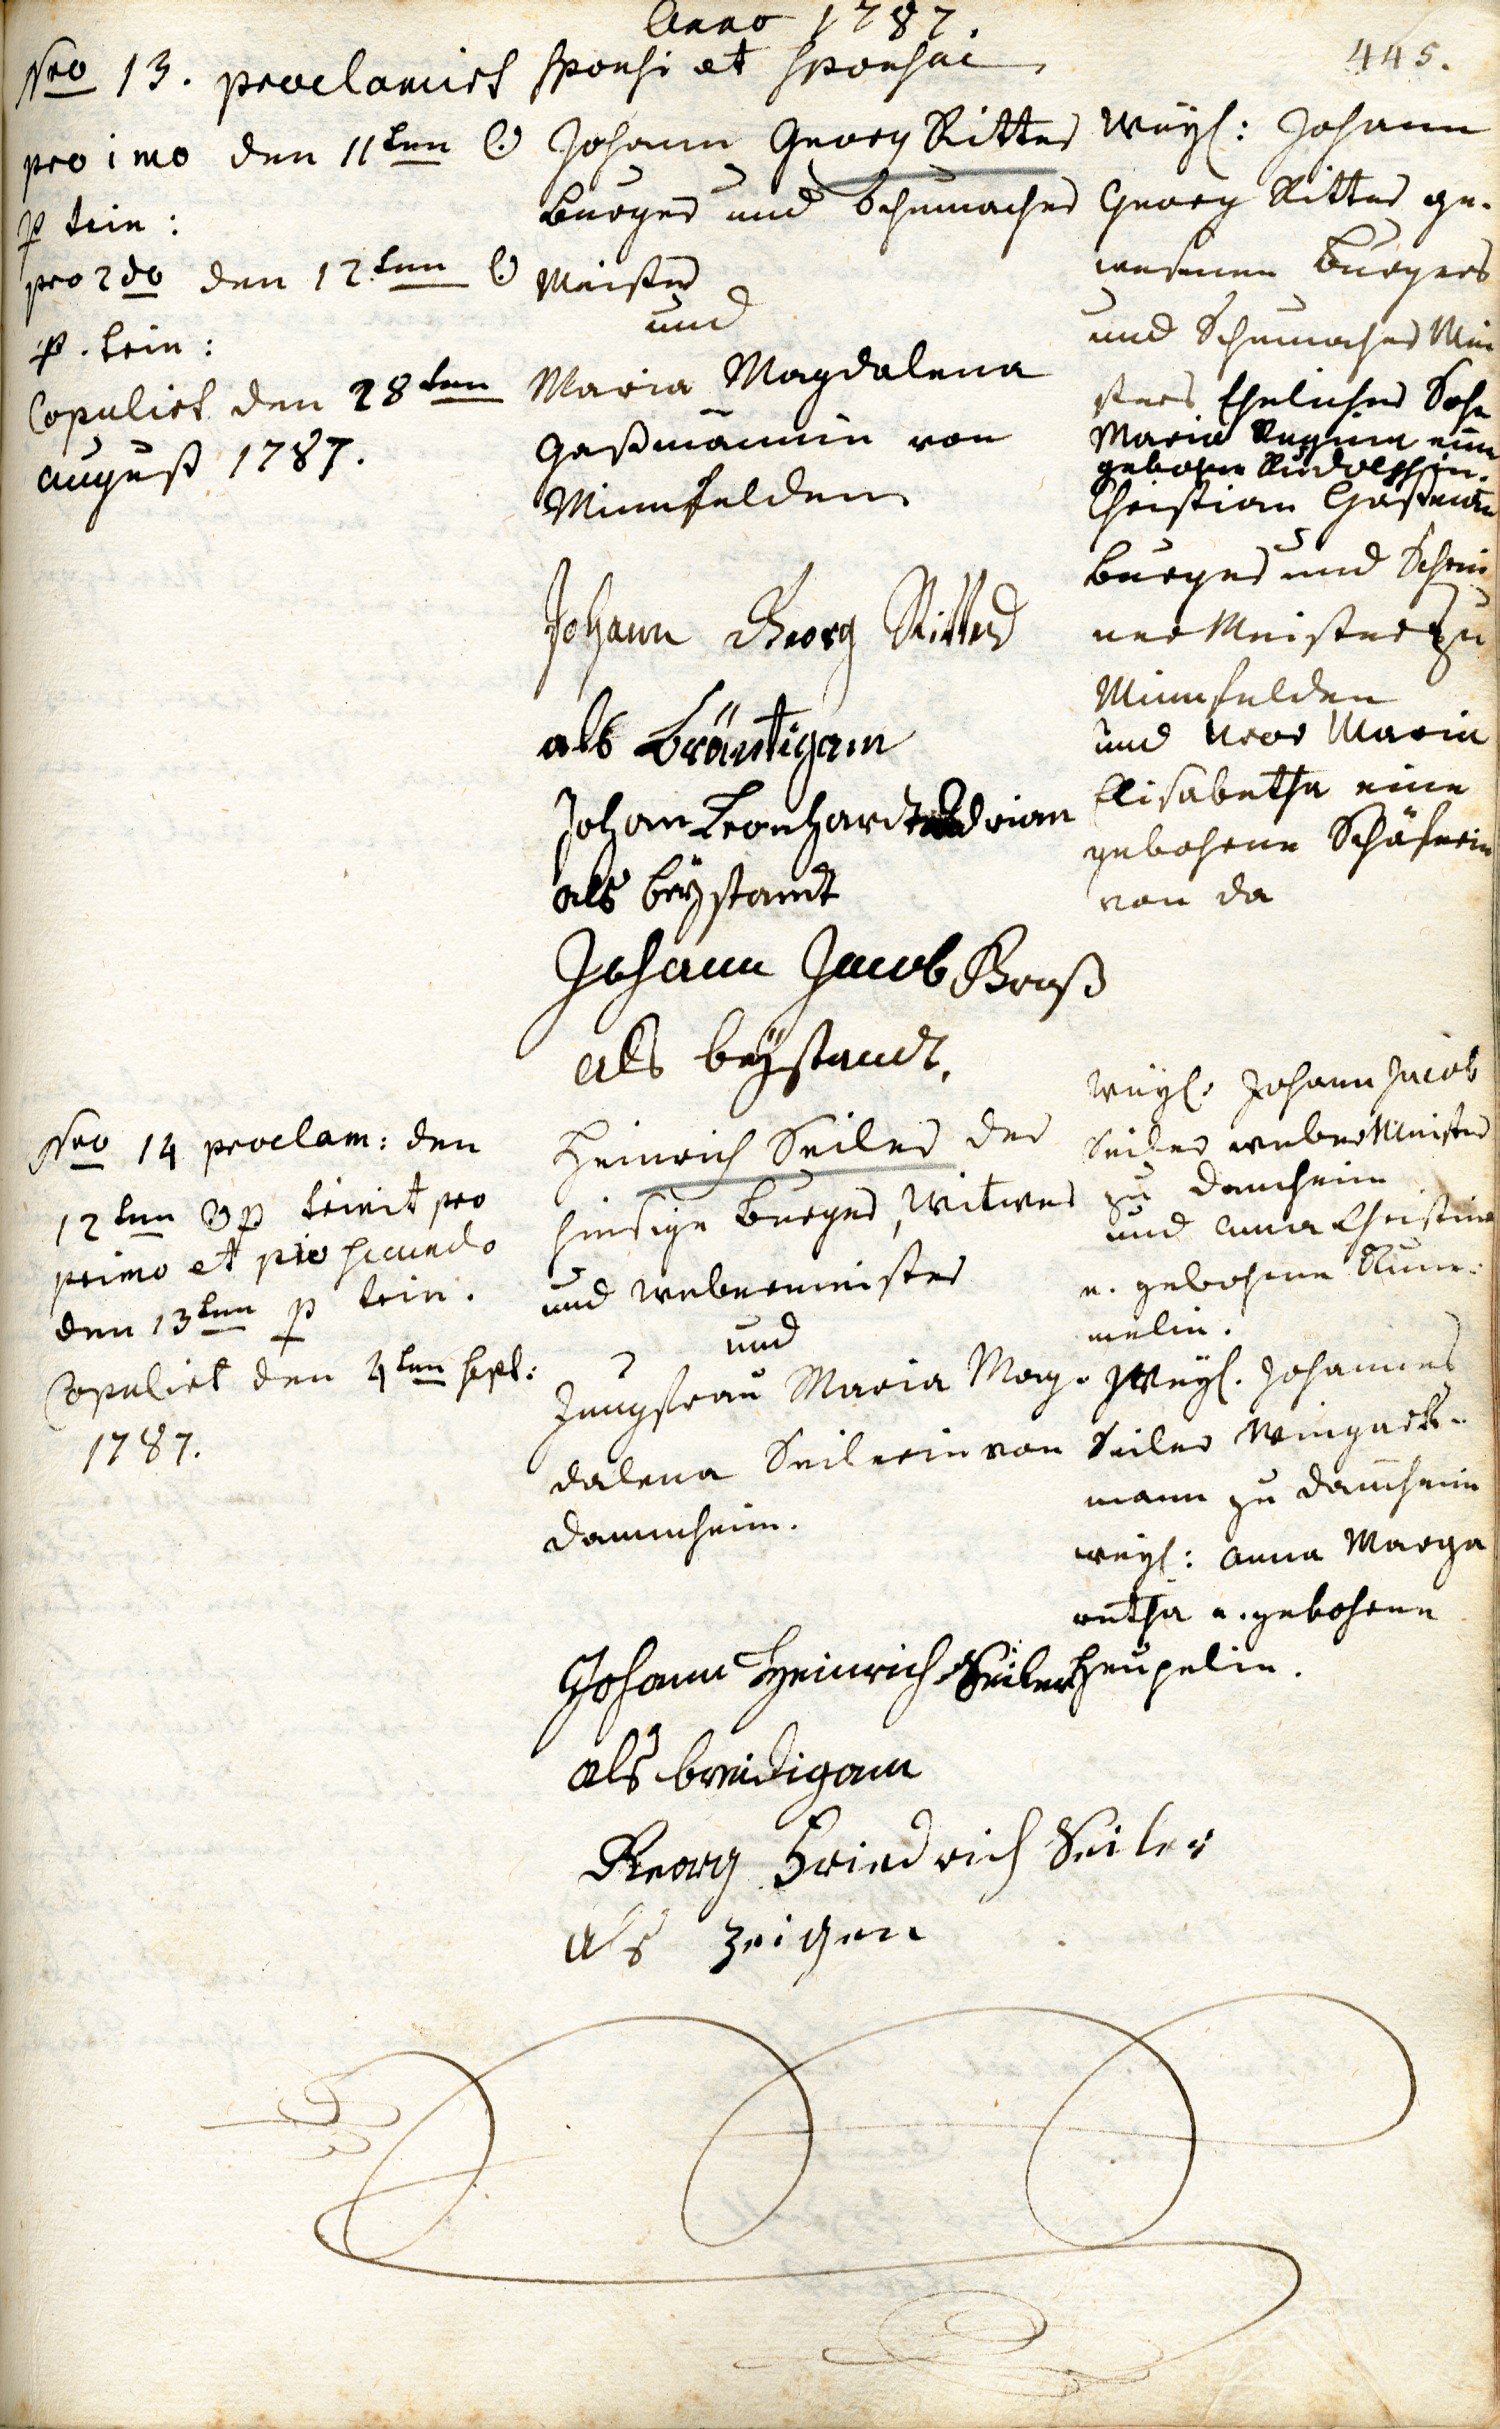 Anno 1787.
445.
Nro 13. proclamirt
pro imo den 11ten
p trin:
pro 2do den 12ten
p. trin:
Copulirt den 28ten
august 1787.
Sponsi et Sponsae
Johann Georg Ritter
Burger und Schumacher
Meister
und
Maria Magdalena
Gaßmännin von
Minnfelden
Johann Georg Ritter
als Bräutigam
Johan Leonhardt Adrian
als beystandt
Johann Jacob Groß
als beystandt.
Weyl: Johann
Georg Ritter ge-
wesenen Burgers
und Schumacher Mei
sters Ehelicher Sohn
Maria Regina eine
gebohrne Rudolphin.
Christian Gaßmann
Burger und Schrei
ner Meister zu
Minnfelden
und Maria
Elisabetha eine
gebohrene Schäferin
von da
Nro 14 proclam: den
12ten p trinit pro
primo et pro secundo
den 13ten p trin.
Copulirt den 4ten Sept:
1787.
Heinrich Seiler der
hiesige Burger, Witwer
und webermeister
und
Jungfrau Maria Mag-
dalena Seilerin von
Dammheim.
Johann Heinrich Seiler
als breidigam
Georg Friedrich Seiler
als zeigen
Weyl. Johann Jacob
Seiler weber Meister
zu Damheim
und anna Christina
e. gebohrne Rum-
melin.
Weyl. Johannes
Seiler Wingarts-
mann zu Damheim
weyl: anna Marga
retha e. gebohrene
Heupelin.